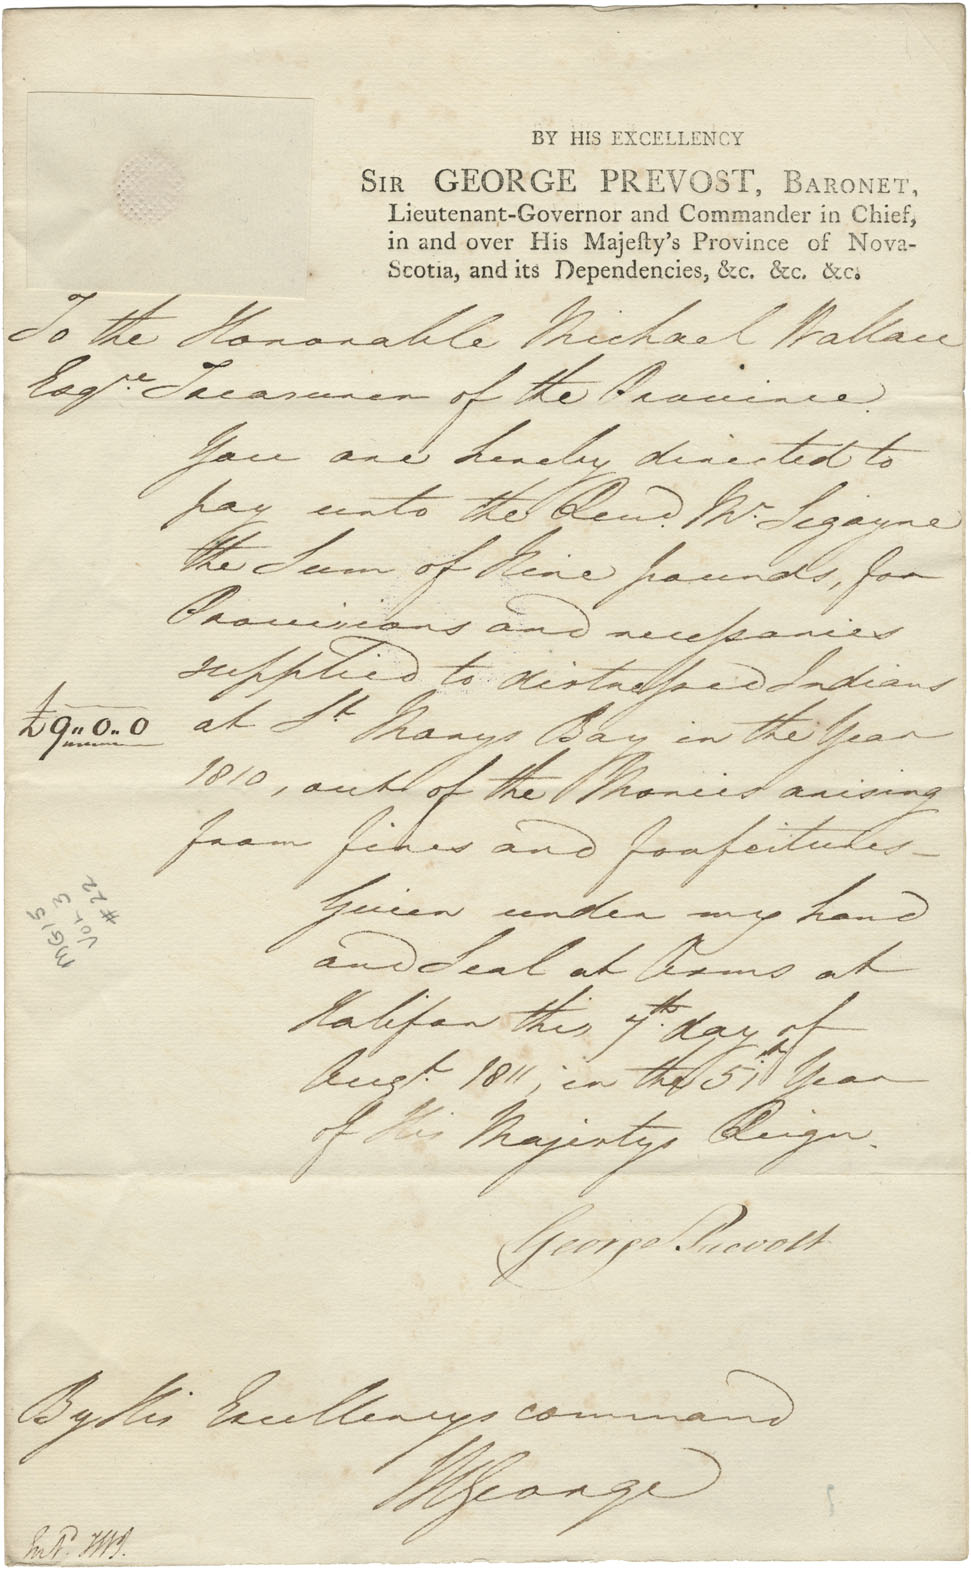 BY HIS EXCELLENCY
SIR GEORGE PREVOST, BARONET,
Lieutenant-Governor and Commander in Chief,
in and over His Majeſty's Province of Nova-
Scotia, and its Dependencies, &c. &c. &c.
To the Honorable Michael Wallace
Esqre. Treasurer of the Province.
You are hereby directed to
pay unto the Revd. Mr. Sigogne
the Sum of Nine pounds, for
Provisions and necessaries
supplied to distressed Indians
£9" 0" 0
at St. Marys Bay in the Year
1810, out of the Monies arising
from fines and forfeitures—
Given under my hand
and Seal at Arms at
Halifax this 7th. day of
Augt. 1811, in the 51th Year
of His Majestys Reign.
MG15
Vol 3
#22
George Prevost
By His Excellencys command
HGeorge